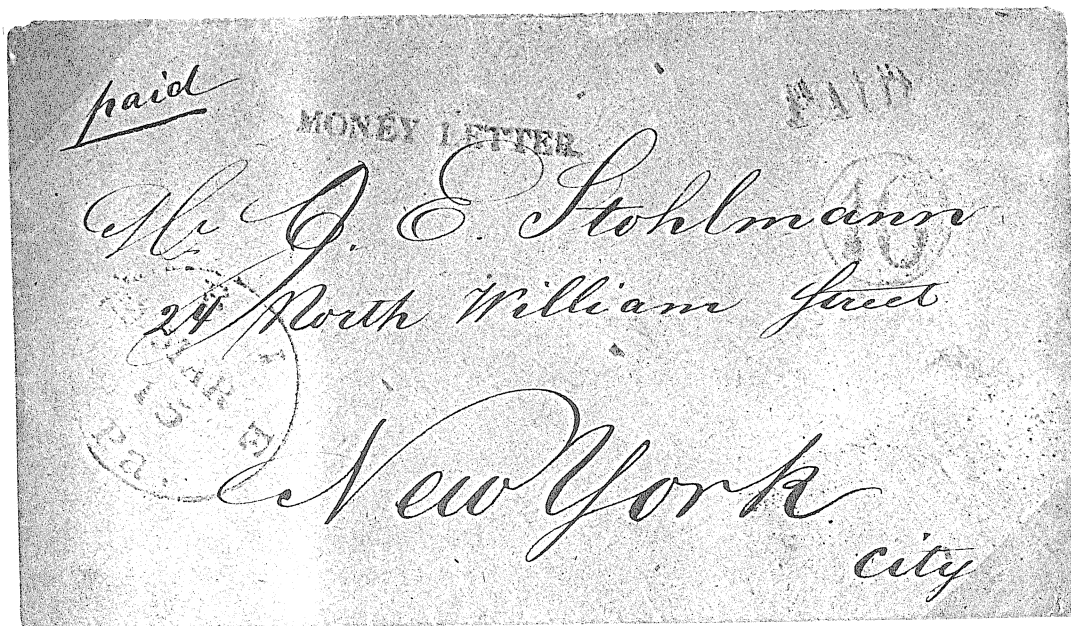 paid
MONEY LETTER
PAID
10
Mr J. E. Stohlmann
24 North William Street
MAR
Pa
New York
city